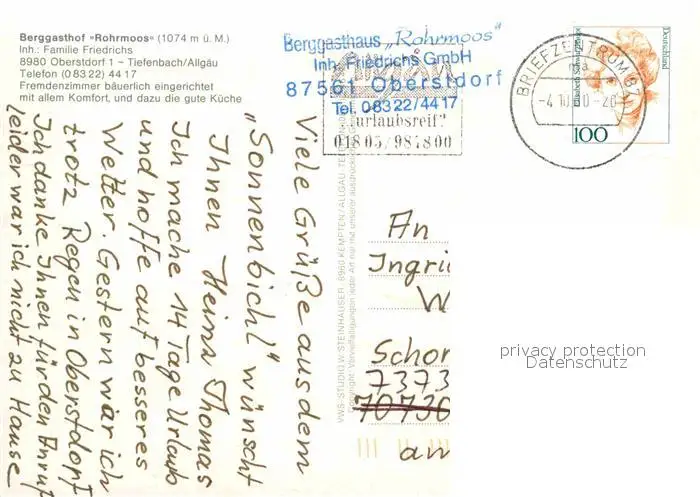 Berggasthof »Rohrmoos« (1074 m ü. M.)
Inh.: Familie Friedrichs
8980 Oberstdorf 1 – Tiefenbach/Allgäu
Telefon (0 83 22) 44 17
Fremdenzimmer bäuerlich eingerichtet
mit allem Komfort, und dazu die gute Küche
Berggasthaus „Rohrmoos"
Inh. Friedrichs GmbH
87561 Oberstdorf
Tel. 08322/4417
urlaubsreif?
01805/985800
BRIEFZENTRUM 87
-4.10.00-20
Deutschland
100
Viele Grüße aus dem
„Sonnenbichl" wünscht
Ihnen Heinz Thomas
Ich mache 14 Tage Urlaub
und hoffe auf besseres
Wetter. Gestern war ich
trotz Regen in Oberstdorf
Ich danke Ihnen für den Anruf
leider war ich nicht zu Hause
VWS-STUDIO W. STEINHAUSER 8960 KEMPTEN/ALLGÄU
An
Ingri
W
Schor
7373
70736
am
privacy protection
Datenschutz